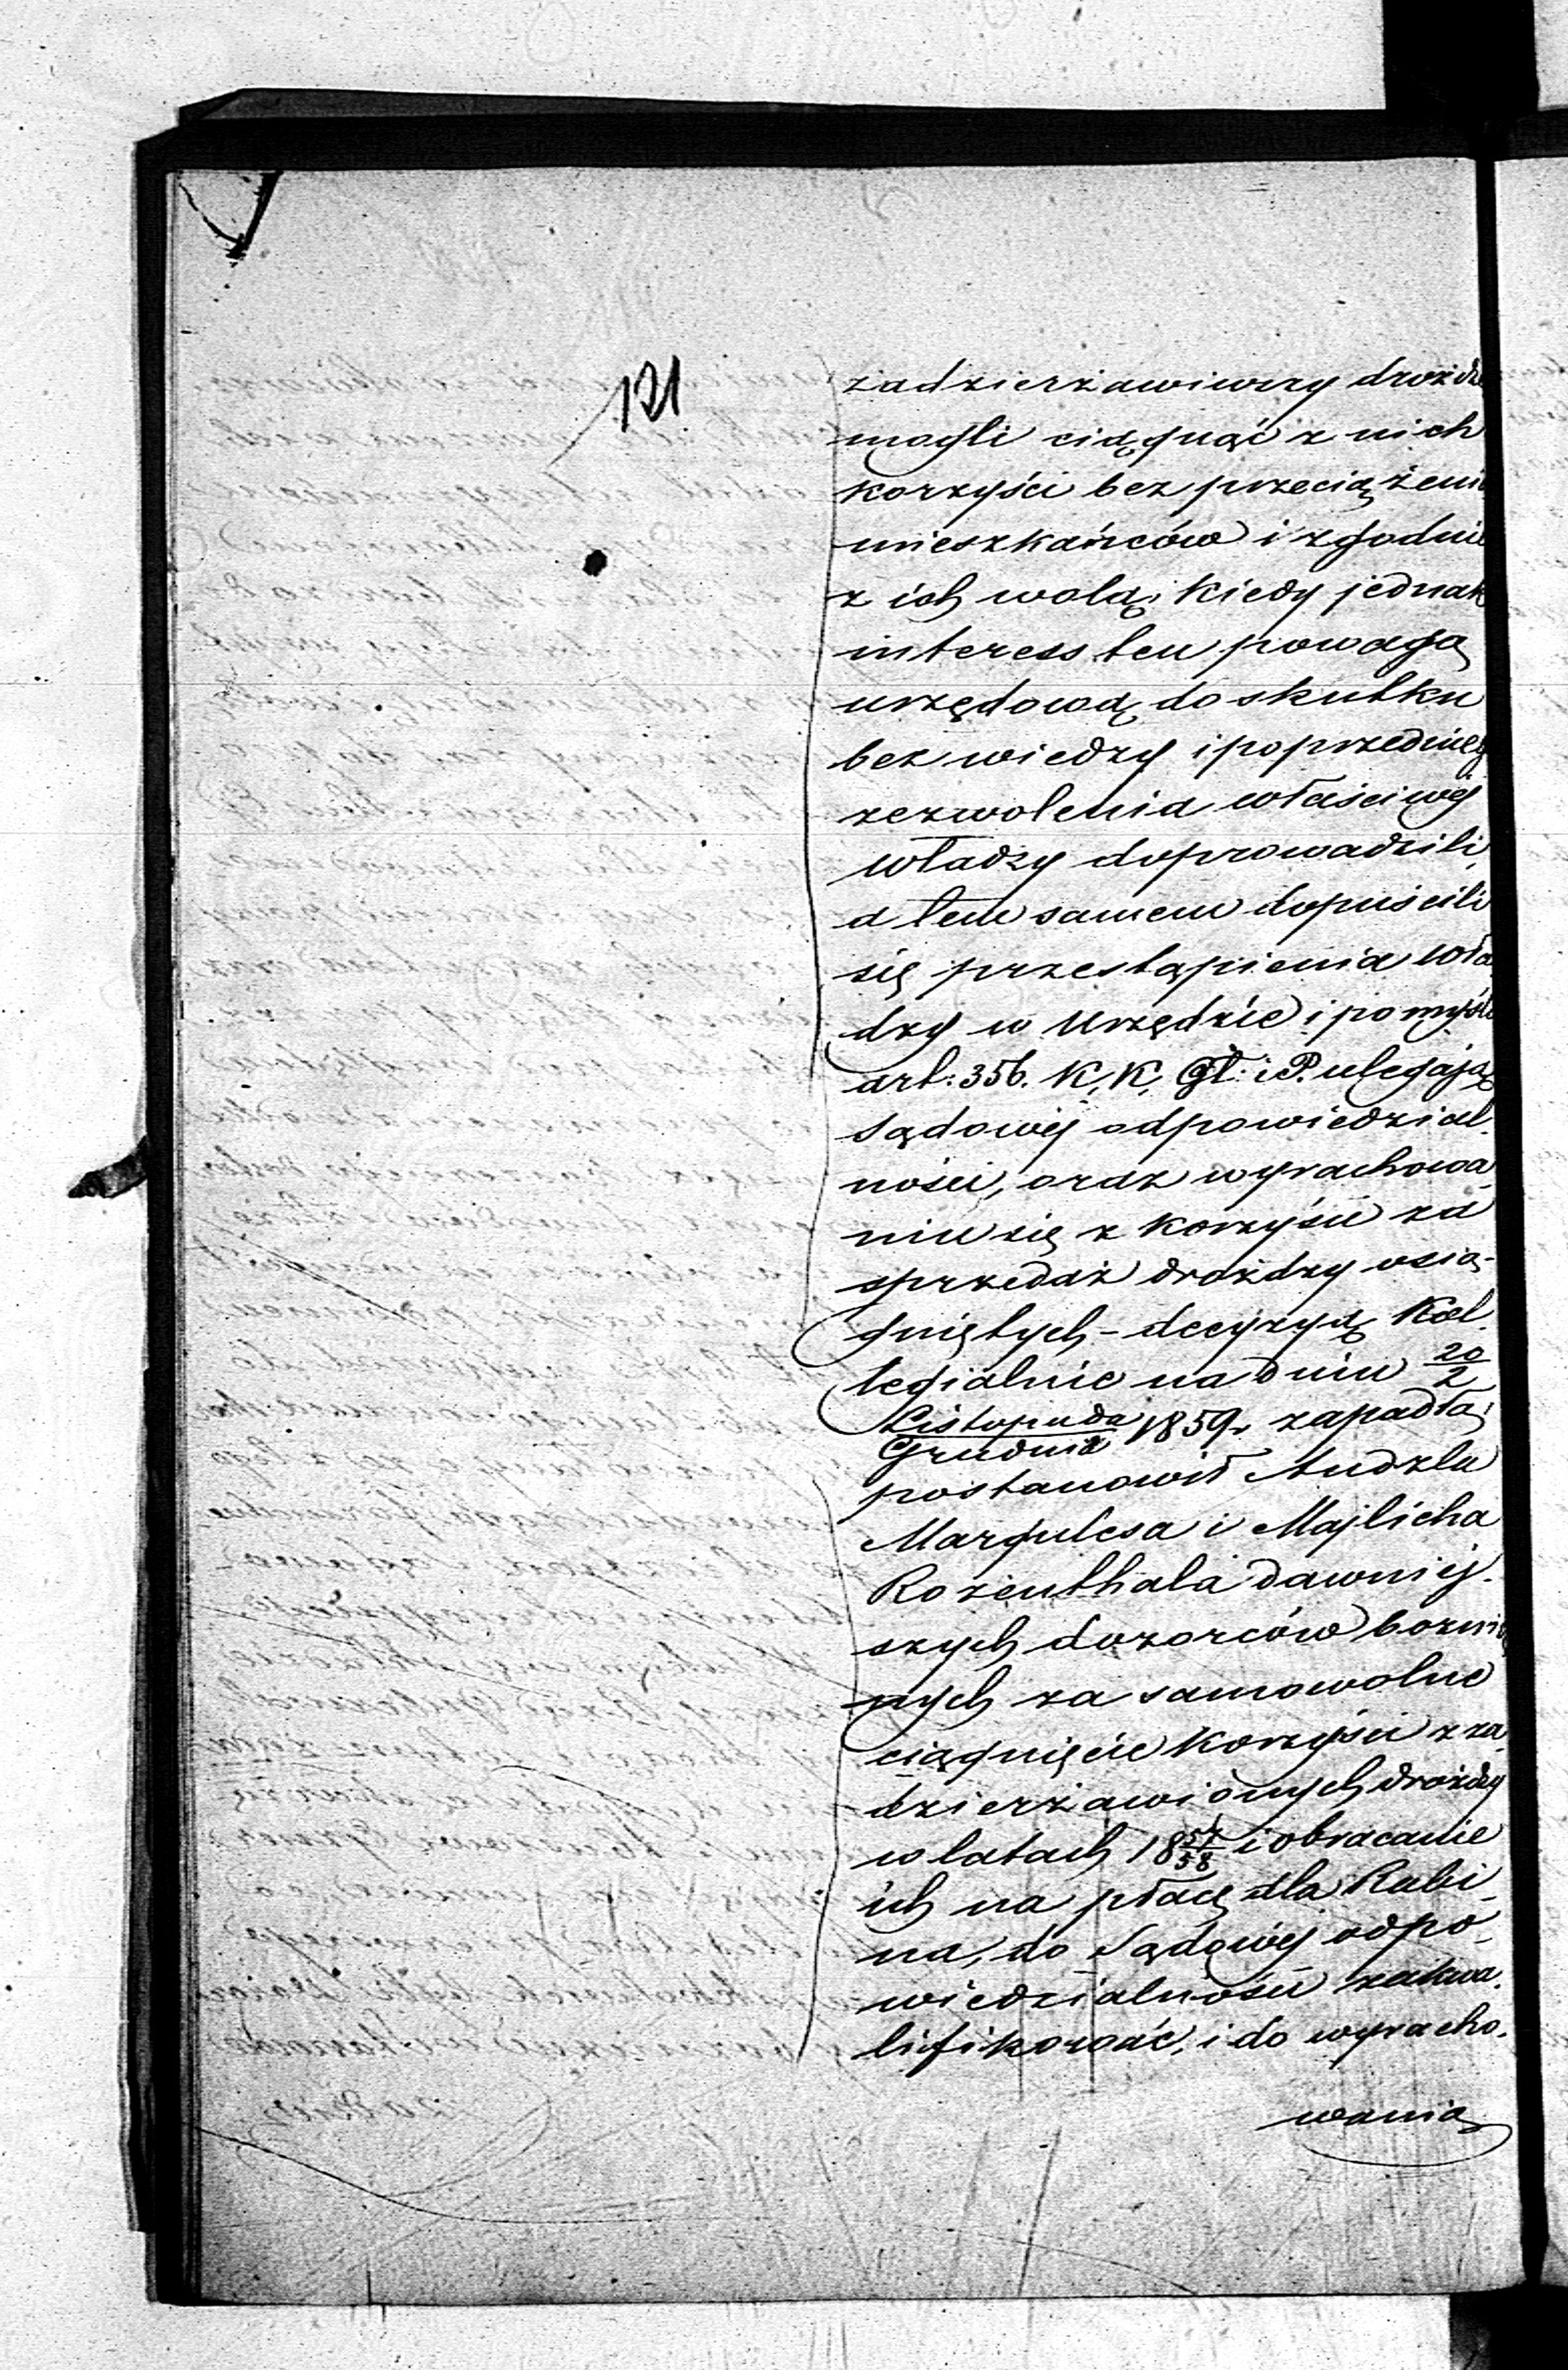 121
zadzierżawiwszy drożdże
mogli ciągnąć z nich
korzyści bez przeciążeni
mieszkańców i zgodnie
z ich wolą, kiedy jednak
interess ten powagą
urzędową do skutku
bez wiedzy i poprzednieg
zezwolenia właściwéj
Władzy doprowadzili,
a tem samem dopuścili
się przestąpienia wła
dzy w Urzędzie i po myśli
art: 356. K. K. Gł: i P. ulegają
sądowéj odpowiedzial.
ności, oraz wyrachowa
niu się z korzyści za
sprzedaż drożdzy osią-
gniętych – decyzyą Kol.
legialnie na dniu 20/2
Listopada/Grudnia 1859 r. zapadłą
postanowił Andzla
Margulesa i Majlicha
Rozenthala dawniéj-
szych dozorców bożni
nych za samowolne
ciągnięcie korzyści z za
dzierżawionych drożdży
w latach 1857/58 i obracanie
ich na płacę dla Rabi-
na, do Sądowéj odpo-
wiedzialności zakwa.
lifikować, i do wyracho.
wania